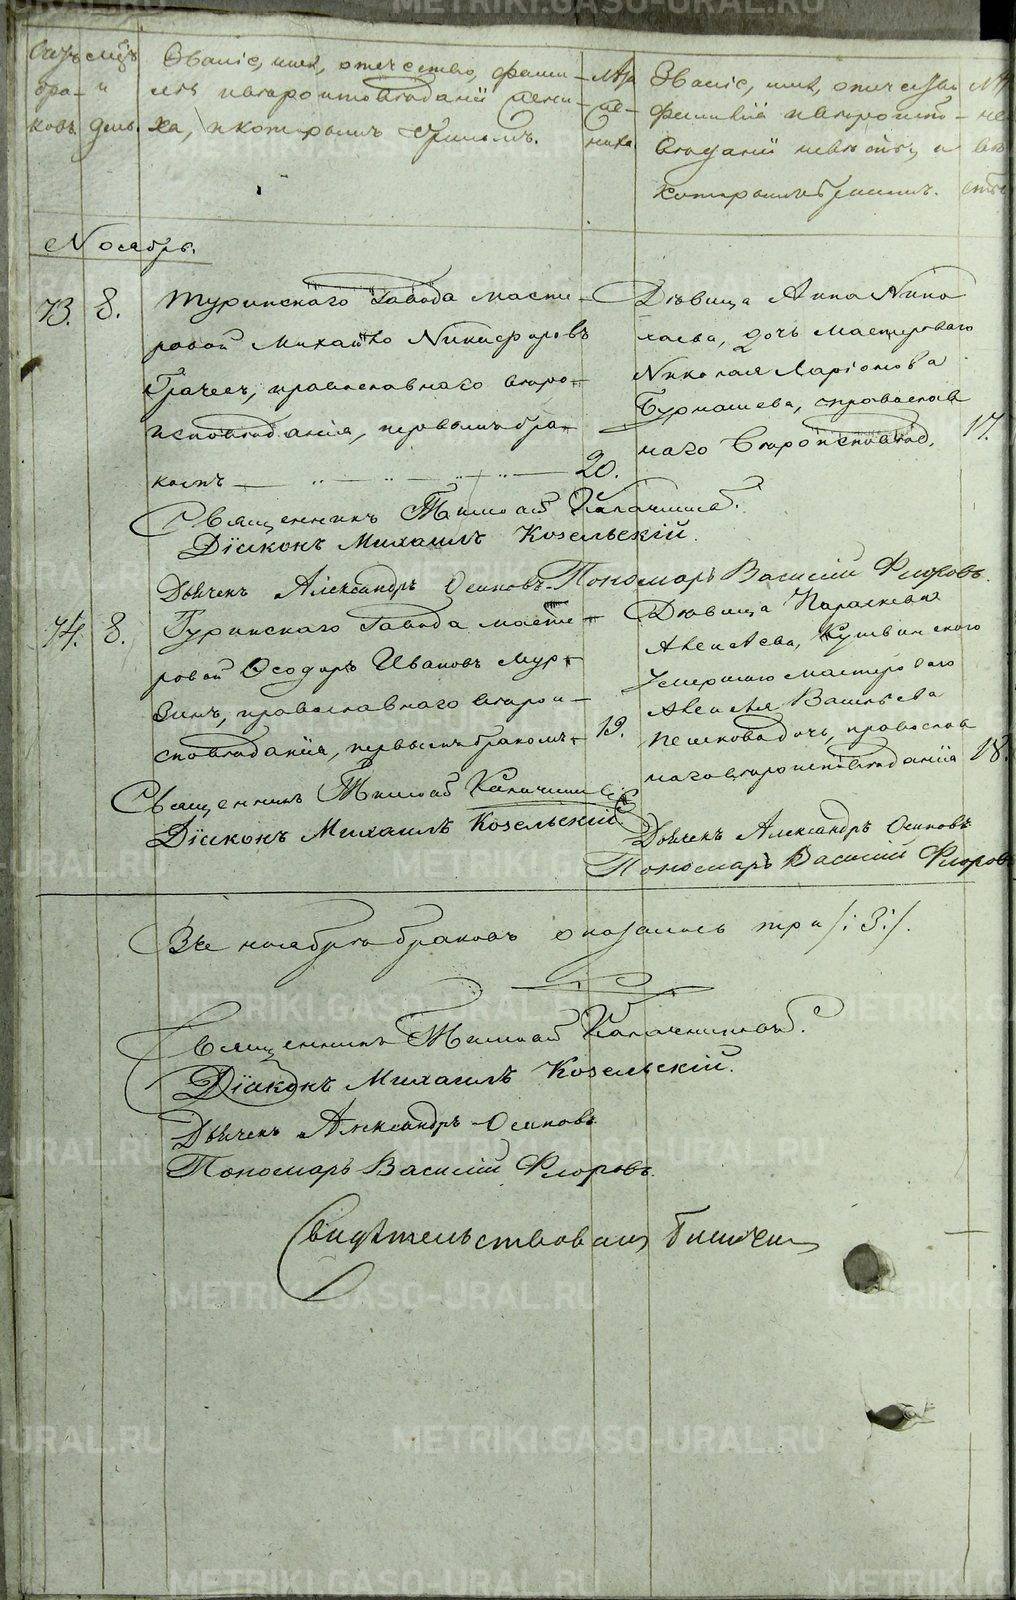 Счетъ
бра-
ковъ.
мѣс.
и
день.
Званіе, имя, отчество, фами-
лія и вѣроисповѣданіе жени-
ха, и которымъ бракомъ.
Лѣта
же-
ниха
Званіе, имя, отчество,
фамилія и вѣроиспо-
вѣданіе невѣсты, и
которымъ бракомъ.
Ноябрь.
73.
8.
Туринскаго Завода масте-
ровой Михайло Никифоровъ
Грачев, православнаго вѣро-
исповѣданія, первымъ бра-
комъ
20.
Дѣвица Анна Нико
лаева, дочь мастероваго
Николая Ларіонова
Бурмашева, православ
наго вѣроисповѣд.
17.
Священникъ Тимофей Калачниковъ.
Діаконъ Михаилъ Козельскій.
Дьячекъ Александръ Осиповъ Пономарь Василій Флоровъ.
74.
8.
Туринскаго Завода масте-
ровой Ѳеодоръ Ивановъ Мур-
зинъ, православнаго вѣрои-
сповѣданія, первымъ бракомъ
19.
Дѣвица Параскева
Алексѣева, Кушвинскаго
умершаго мастероваго
Алексѣя Васильева
Пешкова дочь, православ
наго вѣроисповѣданія
18.
Священникъ Тимофей Калачниковъ
Діаконъ Михаилъ Козельскій
Дьячекъ Александръ Осиповъ
Пономарь Василій Флоровъ
Въ ноябрѣ браковъ оказалось три /:3:/.
Священникъ Тимофей Калачниковъ.
Діаконъ Михаилъ Козельскій.
Дьячекъ Александръ Осиповъ
Пономарь Василій Флоровъ.
Свидѣтельствовалъ
METRIKI.GASO-URAL.RU